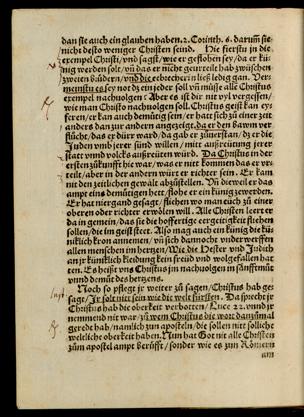 dan sie auch ein glauben haben. 2. Corinth. 6. darum sie
nicht desto weniger Christen seind. Hie fierstu in die
exempel Christi/ vnd sagst/ wie er geflohen sey/ da er kü-
nig werden solt/ vñ das er nicht geurteilt hab zwischen
zweien brüdern/ vnd die eebrecherin ließ ledig gan. Ver-
meinstu es sey not dz ein jeder soll vñ müsse alle Christus
exempel nachuolgen? Aber es ist dir nit vyl vergessen/
wie man Christo nachuolgen soll. Christus geist kan ey-
feren/ er kan auch demütig sein/ er hatt sich zů einer zeit
anders dan zur andern angezeigt. da er den bawm ver-
flůcht/ das er dürr ward/ da gab er zůuerstan/ dz er die
Juden vnd jerer sünd willen/ mitt außreütung jerer
statt vnnd volcks außreüten würd. Da Christus in der
ersten zůkunfft hie war/ was er nit kommen das er vr-
teil/ aber in der andern würt er richter sein. Er kam
mit den zeitlichen gewalt abzůstellen. Vñ derweil er das
ampt eins demütigen hett/ flohe er ein künig zewerden.
Er hat niergand gesagt/ fliehen wo man euch zů einer
oberen oder richter erwölen will. Alle Christen leert er
da in gemein/ das sie die hoffertige eergeitigkeit fliehen
sollen/ die im geist steet. Also mag auch ein künig die kü-
niklich kron annemen/ vñ sich dannocht vnder werffen
allen menschen im hergen. Wie die Hester vnd Judith
an jr künklich kleidung kein freud vnd wolgefallen hat
ten. Es heißt vns Christus jm nachuolgen in sänfftmůt
vnnd demůt des hertzens.
Noch so pflegt jr weiter zů sagen/ Christus hab ge-
sagt/ Jr solt nitt sein wie die welt fürsten. Da sprecht jr
Christus hab die oberkeit verbotten/ Luce 22. vnnd jr
nemmend nit war/ zů wem Christus die wort danzůmal
geredt hab/ namlich zun aposteln/ die sollen nitt solliche
weltliche oberkeit haben. Nun hat Got nit alle Christen
zům apostel ampt berüfft/ sonder wie es zun Römern
am